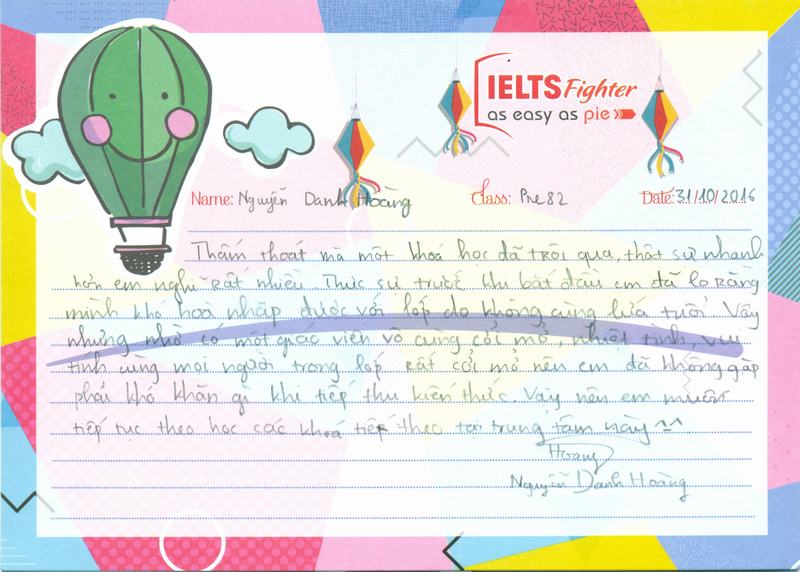 IELTS Fighter
as easy as pie
Name: Nguyễn Danh Hoàng Class: Pre82 Date: 31/10/2016
Thấm thoát mà một khoá học đã trôi qua, thật sự nhanh
hơn em nghĩ rất nhiều. Thực sự trước khi bắt đầu em đã lo rằng
mình khó hoà nhập được với lớp do không cùng lứa tuổi. Vậy
nhưng nhờ có một giáo viên vô cùng cởi mở, nhiệt tình, vui
tính cùng mọi người trong lớp rất cởi mở nên em đã không gặp
phải khó khăn gì khi tiếp thu kiến thức. Vậy nên em muốn
tiếp tục theo học các khoá tiếp theo tại trung tâm này ^^
Hoang
Nguyễn Danh Hoàng